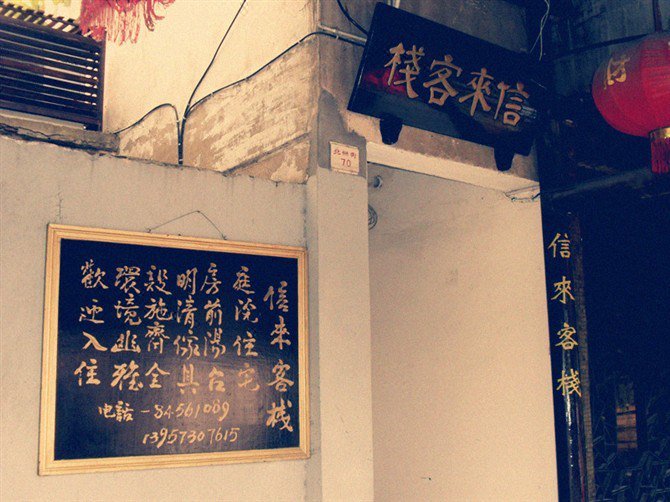 信來客棧
北栅街
70
信來客棧
庭院住宅
房前陽台
明清傢具
設施齊全
環境幽雅
歡迎入住
电話-84561089
13957307615
信來客棧